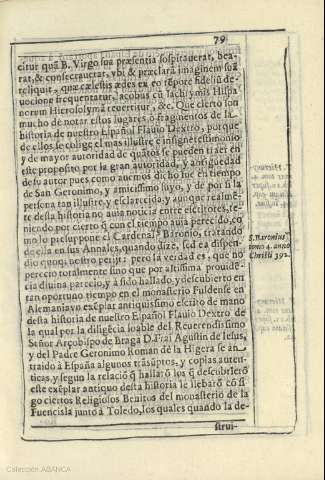 79
citur quā B. Virgo sua præsentia sospitauerat, bea-
rat, & consecrauerat, vbi & præclarā imaginem suā
reliquit, quæ cælestis ædes ex eo tēpore fideliū de-
uocione frequentatur, Iacobus cū sachymis Hispa
norum Hierosolymā reuertitur, &c. Que cierto son
mucho de notar estos lugares o fragmentos de la
historia de nuestro Español Flauio Dextro, porque
de ellos se colige el mas ilustre e insigne testimonio
y de mayor autoridad de quātos se pueden traer en
este proposito por la gran autoridad, y antiguedad
de su autor pues como auemos dicho fue en tiempo
de San Geronimo, y amicissimo suyo, y de por si la
persona tan illustre, y esclarecida, y aunque realmē-
te desta historia no auia noticia entre escritores, te-
niendo por cierto q̄ con el tiempo auia perecido, co
mo lo presuppone el Cardenal Baronio, tratando
de ella en sus Annales, quando dize, sed ea dispen-
dio quoq; nostro perijt: pero la verdad es, que no
perecio totalmente sino que por altissima prouidē-
cia diuina parecio, y à sido hallado, y descubierto en
tan oportuno tiempo en el monasterio Fuldense en
Alemania vn exēplar antiquissimo escrito de mano
desta historia de nuestro Español Flauio Dextro de
la qual por la diligēcia loable del Reuerendissimo
Señor Arçobispo de Braga D. Frai Agustin de Iesus,
y del Padre Geronimo Román de la Higera se an
traido à España algunos trāsuptos, y copias auten-
ticas, y segun la relació q̄ hallarō los q̄ descubrierō
este exēplar antiquo desta historia le llebarō cōsi
go ciertos Religiosos Benitos del monasterio de la
Fuencisla junto à Toledo, los quales quando la de-
strui-
S. Baronius
tomo 4. anno
Christi 392.
Colección ABANCA